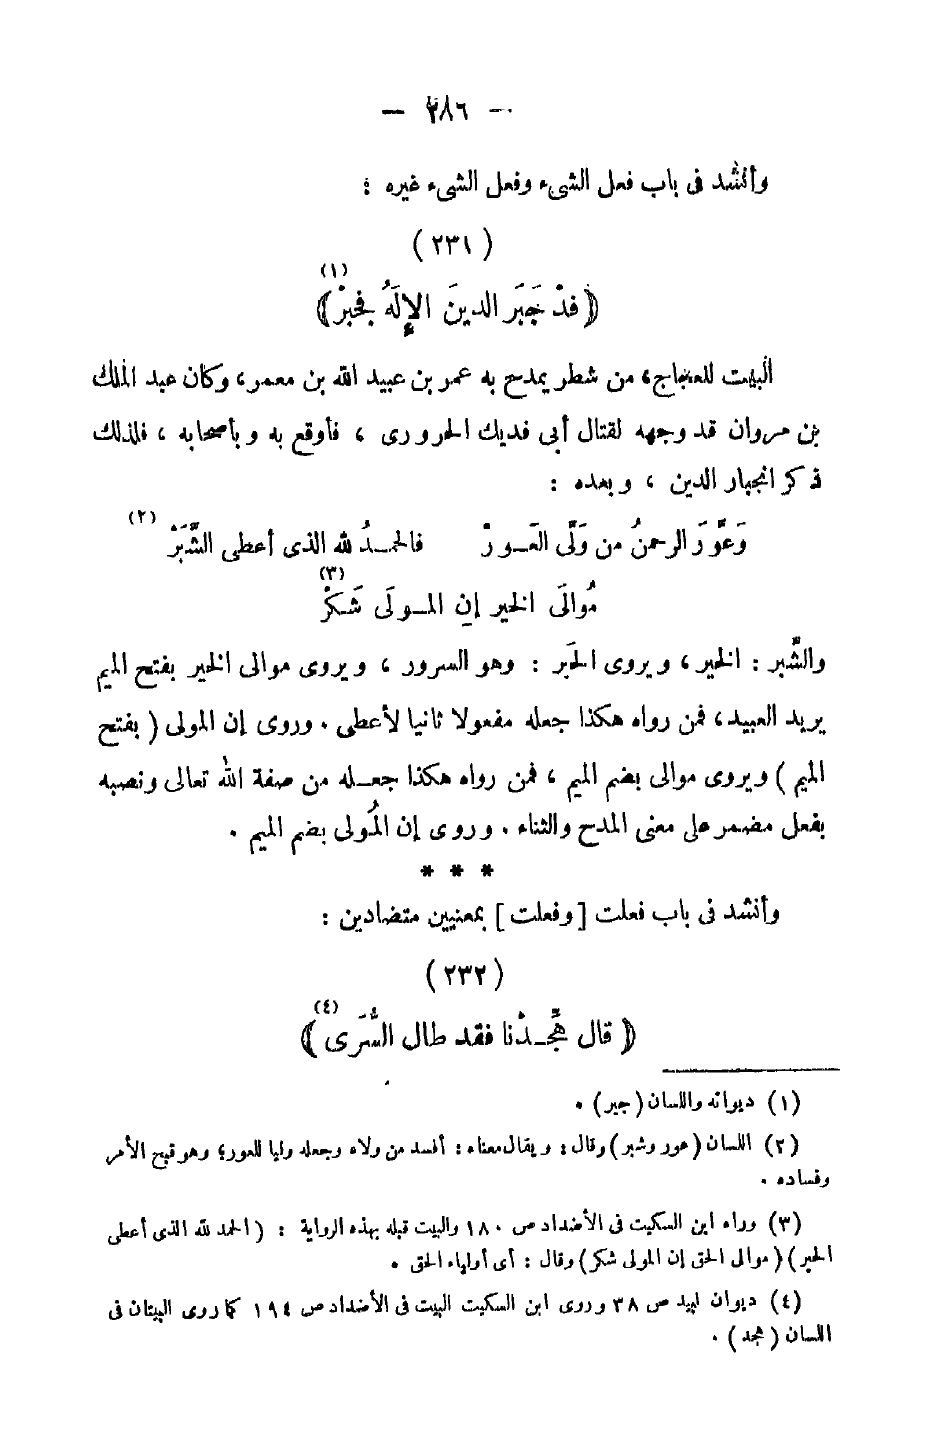 — ٢٨٦ —
وأنشد فى باب فعل الشىء وفعل الشىء غيره :
( ٢٣١ )
(١)
﴿ قدْ جَبَر الدينَ الإلَهُ فجبرْ ﴾
البيت للعجاج، من شطر يمدح به عمر بن عبيد الله بن معمر، وكان عبد الملك
بن مروان قد وجهه لقتال أبى فديك الحرورى ، فأوقع به وبأصحابه ، فلذلك
ذكر انجبار الدين ، وبعده :
وَعَوَّرَ الرحمنُ من وَلَّى العَـورْ فالحمـدُ لله الذى أعطى الشَّبَرْ (٢)
مُوالَى الخير إن المـولَى شَكَرْ (٣)
والشَّبر : الخير ، ويروى الحَبر : وهو السرور ، ويروى موالى الخير بفتح الميم
يريد العبيد، فمن رواه هكذا جعله مفعولا ثانيا لأعطى . وروى إن المولى ( بفتح
الميم ) ويروى موالى بضم الميم ، فمن رواه هكذا جعـله من صفة الله تعالى ونصبه
بفعل مضمر على معنى المدح والثناء . وروى إن المُولى بضم الميم .
* * *
وأنشد فى باب فعلت [ وفعلت ] بمعنيين متضادين :
( ٢٣٢ )
﴿ قال هَجِّـدْنا فقد طال السُّرَى ﴾ (٤)
(١) ديوانه واللسان ( جبر ) .
(٢) اللسان ( عور وشبر ) وقال : ويقال معناه : أفسد من ولاه وجعله وليا للعور؛ وهو قبح الأمر
وفساده .
(٣) وراه ابن السكيت فى الأضداد ص ١٨٠ والبيت قبله بهذه الرواية : ( الحمد لله الذى أعطى
الحبر ) ( موالى الحق إن المولى شكر ) وقال : أى أولياء الحق .
(٤) ديوان لبيد ص ٣٨ وروى ابن السكيت البيت فى الأضداد ص ١٩٤ كما روى البيتان فى
اللسان ( هجد ) .